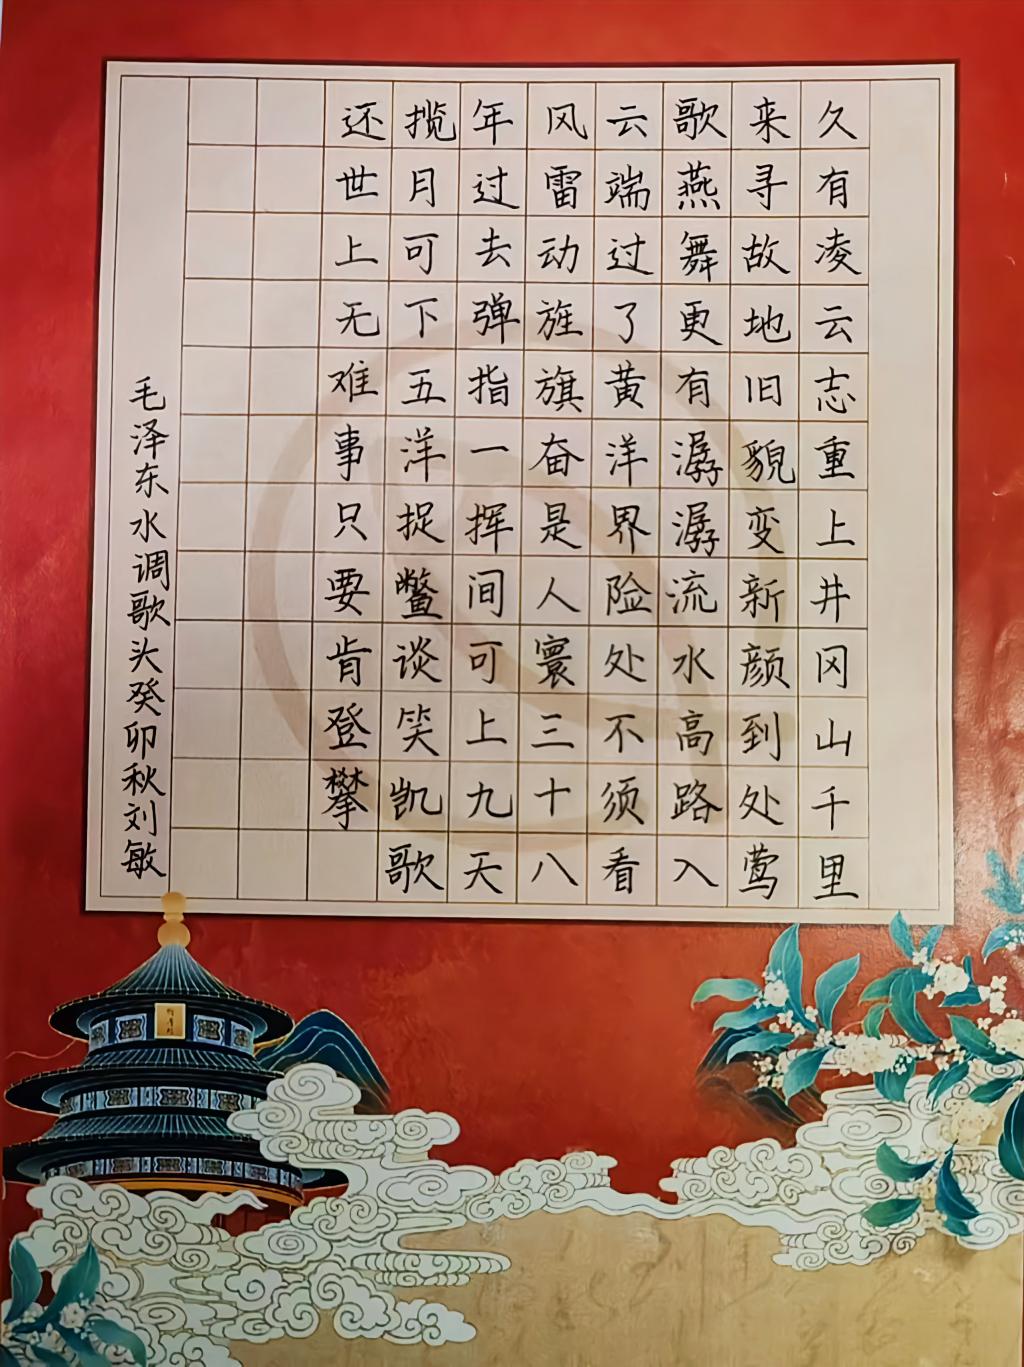 久有凌云志重上井冈山千里
来寻故地旧貌变新颜到处莺
歌燕舞更有潺潺流水高路入
云端过了黄洋界险处不须看
风雷动旌旗奋是人寰三十八
年过去弹指一挥间可上九天
揽月可下五洋捉鳖谈笑凯歌
还世上无难事只要肯登攀
毛泽东水调歌头癸卯秋刘敏